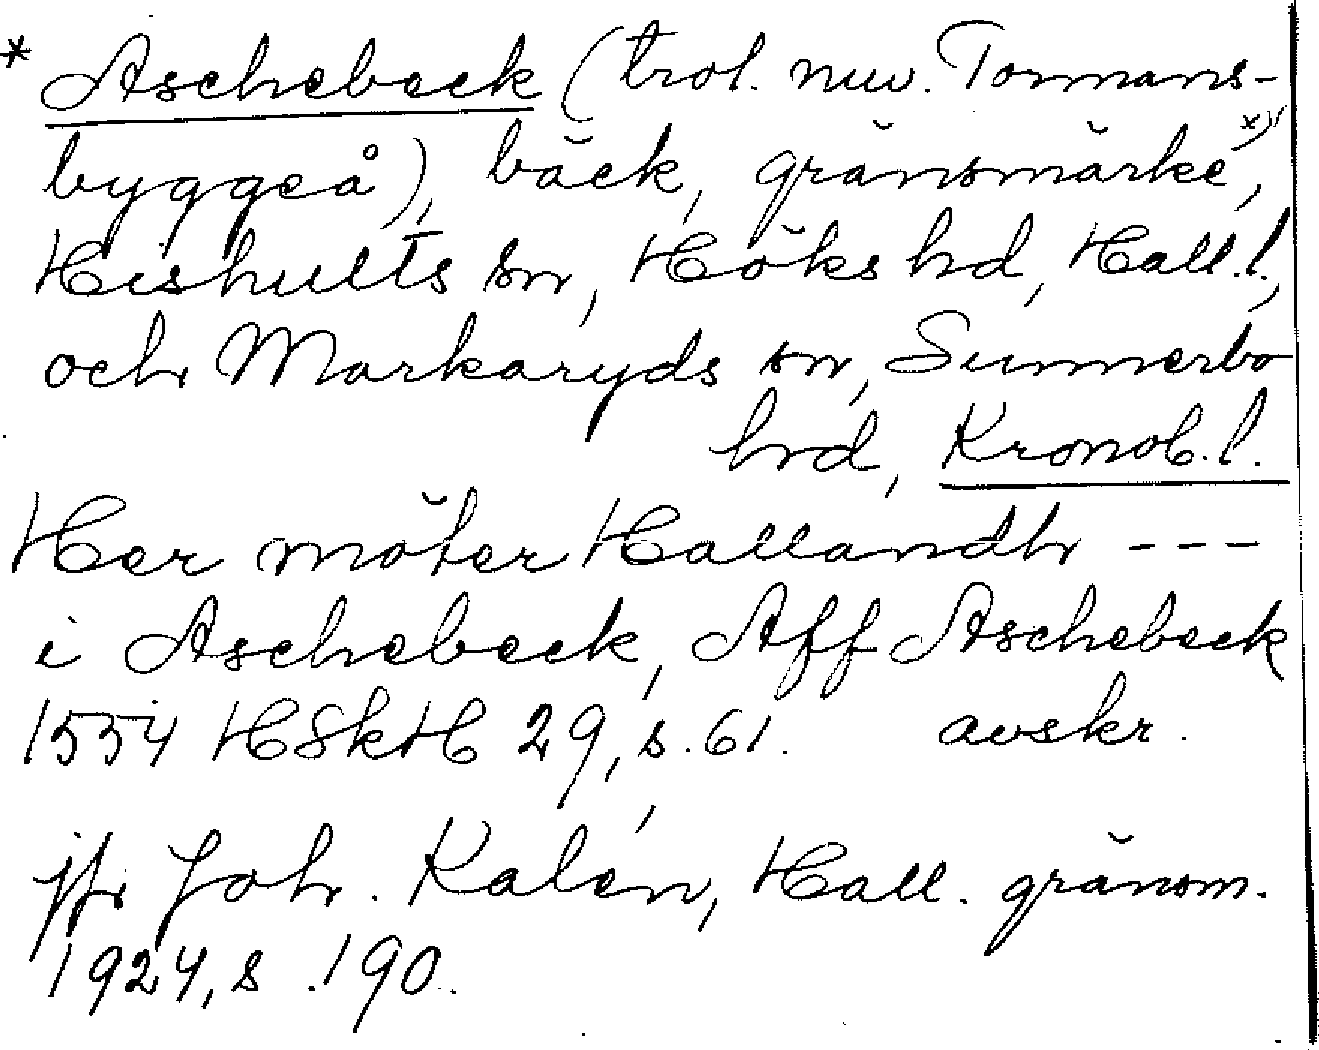 * Aschebeck (trol. nuv. Tormans-
byggeå), bäck, gränsmärke x),
Hishults sn, Höks hd, Hall.l.,
och Markaryds sn, Sunnerbo
hd, Kronob.l.
Her möter Hallandh ---
i Aschebeck, Aff Aschebeck
1554 HSkH 29, s.61. avskr.
jfr Joh. Kalén, Hall. gränsm.
1924, s.190.